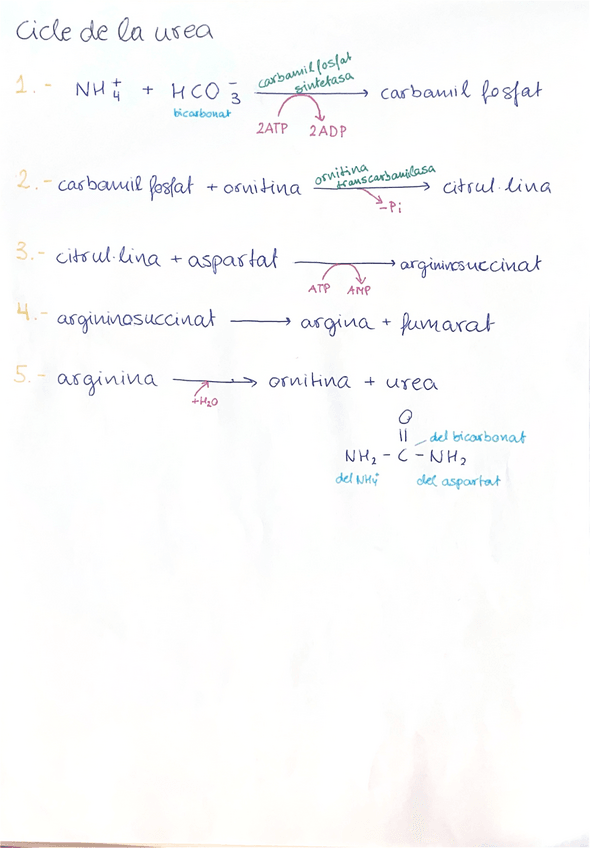 Cicle de la urea
1.- NH₄⁺ + HCO₃⁻ carbamil fosfat sintetasa → carbamil fosfat
bicarbonat
2ATP 2ADP
2.- carbamil fosfat + ornitina ornitina transcarbamilasa → citrul·lina
-Pi
3.- citrul·lina + aspartat → argininosuccinat
ATP AMP
4.- argininosuccinat → argina + fumarat
5.- arginina → ornitina + urea
+H₂O
O
|| del bicarbonat
NH₂ - C - NH₂
del NH₄⁺ del aspartat